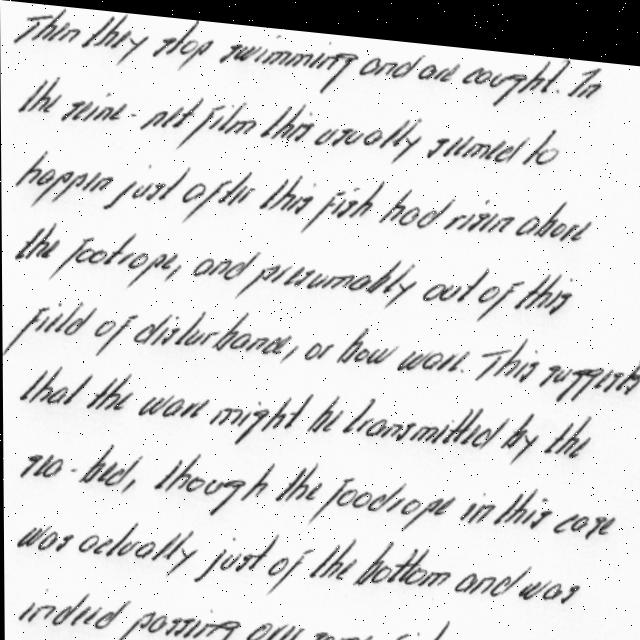 Then they stop swimming and are caught. In
the seine-net film this usually seemed to
happen just after this fish had risen above
the footrope, and presumably out of this
field of disturbance, or bow wave. This suggests
that the wave might be transmitted by the
sea-bed, though the foodrope in this case
was actually just of the bottom and was
indeed passing over some